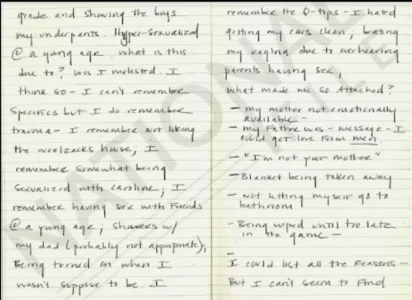 grade and showing the boys
my underpants. Hyper-sexualized
@ a young age. What is this
due to? Was I molested. I
think so - I can't remember
specifics but I do remember
trauma - I remember not liking
the house; I
remember somewhat being
sexualized with Caroline; I
remember having sex with friends
@ a young age; showers w/
my dad (probably not appropriate).
Being turned on when I
wasn't suppose to be. I
remember the Q-tips - I hated
getting my ears clean, beating
my vagina due to overhearing
parents having sex,
What made me so attached?
- my mother not emotionally
available -
- my father was - message - I
could get love from men.
- "I'm not your mother"
- Blanket being taken away
- not letting myself go to
bathroom
- Being wiped until too late
in the game -
-
I could list all the reasons -
But I can't seem to find
NATIONAL